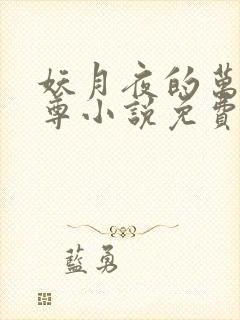 妖月夜的萬
尊小說免費
藍勇